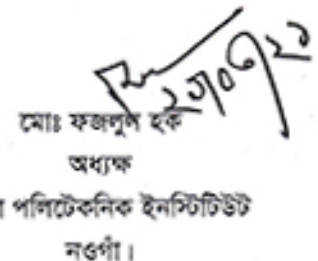 মোঃ ফজলুল হক
অধ্যক্ষ
পলিটেকনিক ইনস্টিটিউট
নওগাঁ।